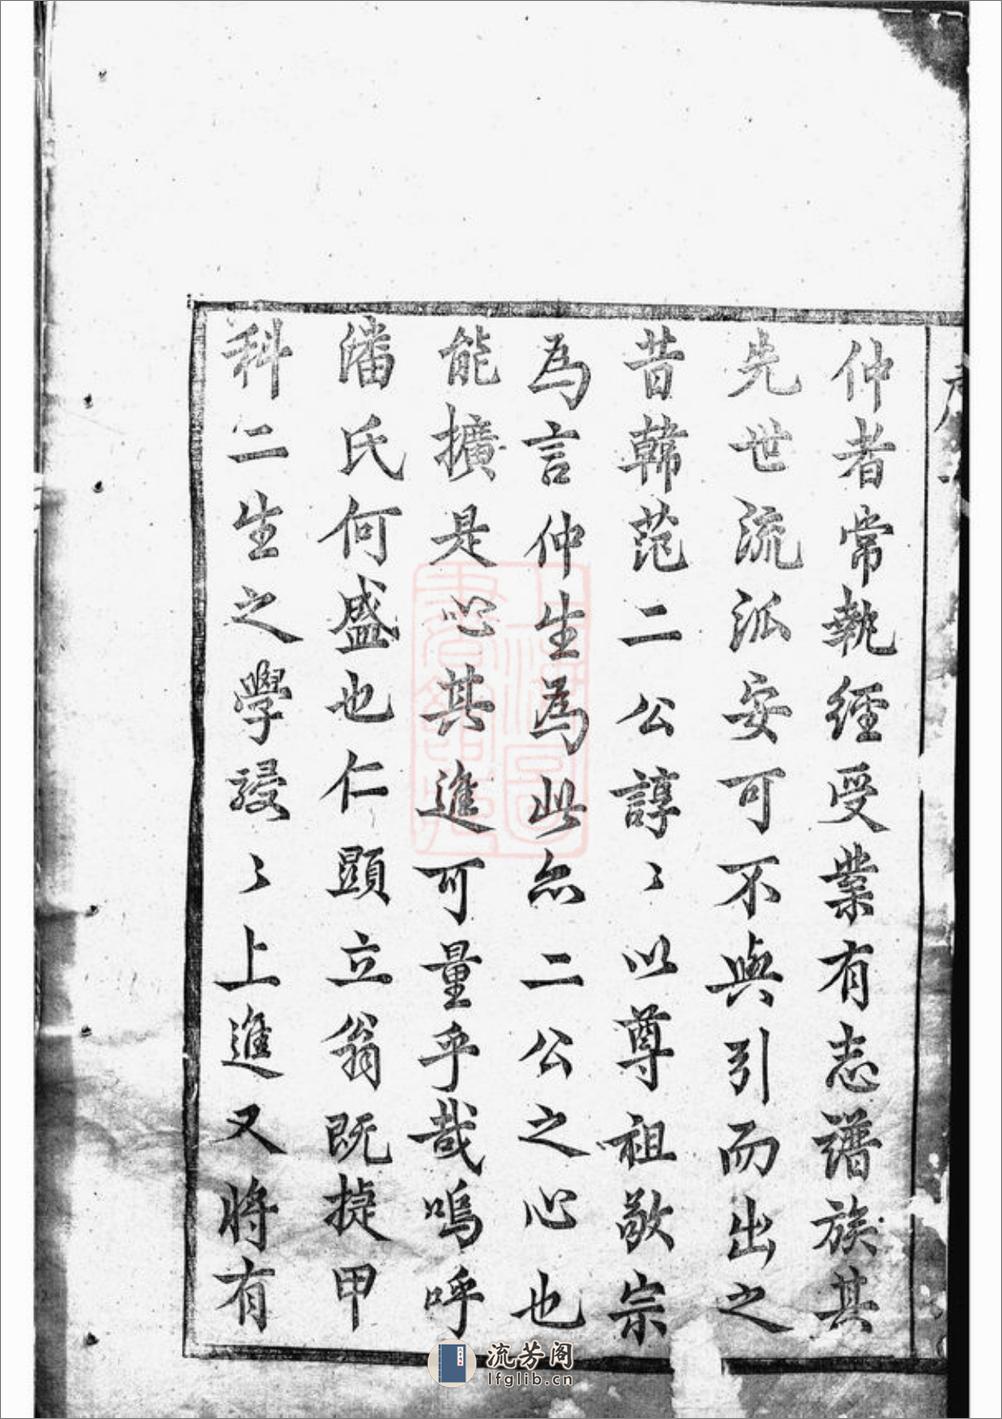 仲者常執經受業有志譜族其
先世流派安可不與引而出之
昔韓范二公諄〻以尊祖敬宗
為言仲生為此亦二公之心也
能擴是心其進可量乎哉嗚呼
潘氏何盛也仁顕立翁既捷甲
科二生之學駸〻上進又將有
流芳阁
lfglib.cn